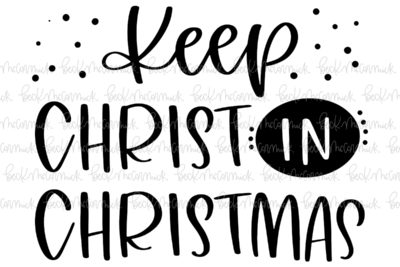 Keep
CHRIST IN
CHRISTMAS